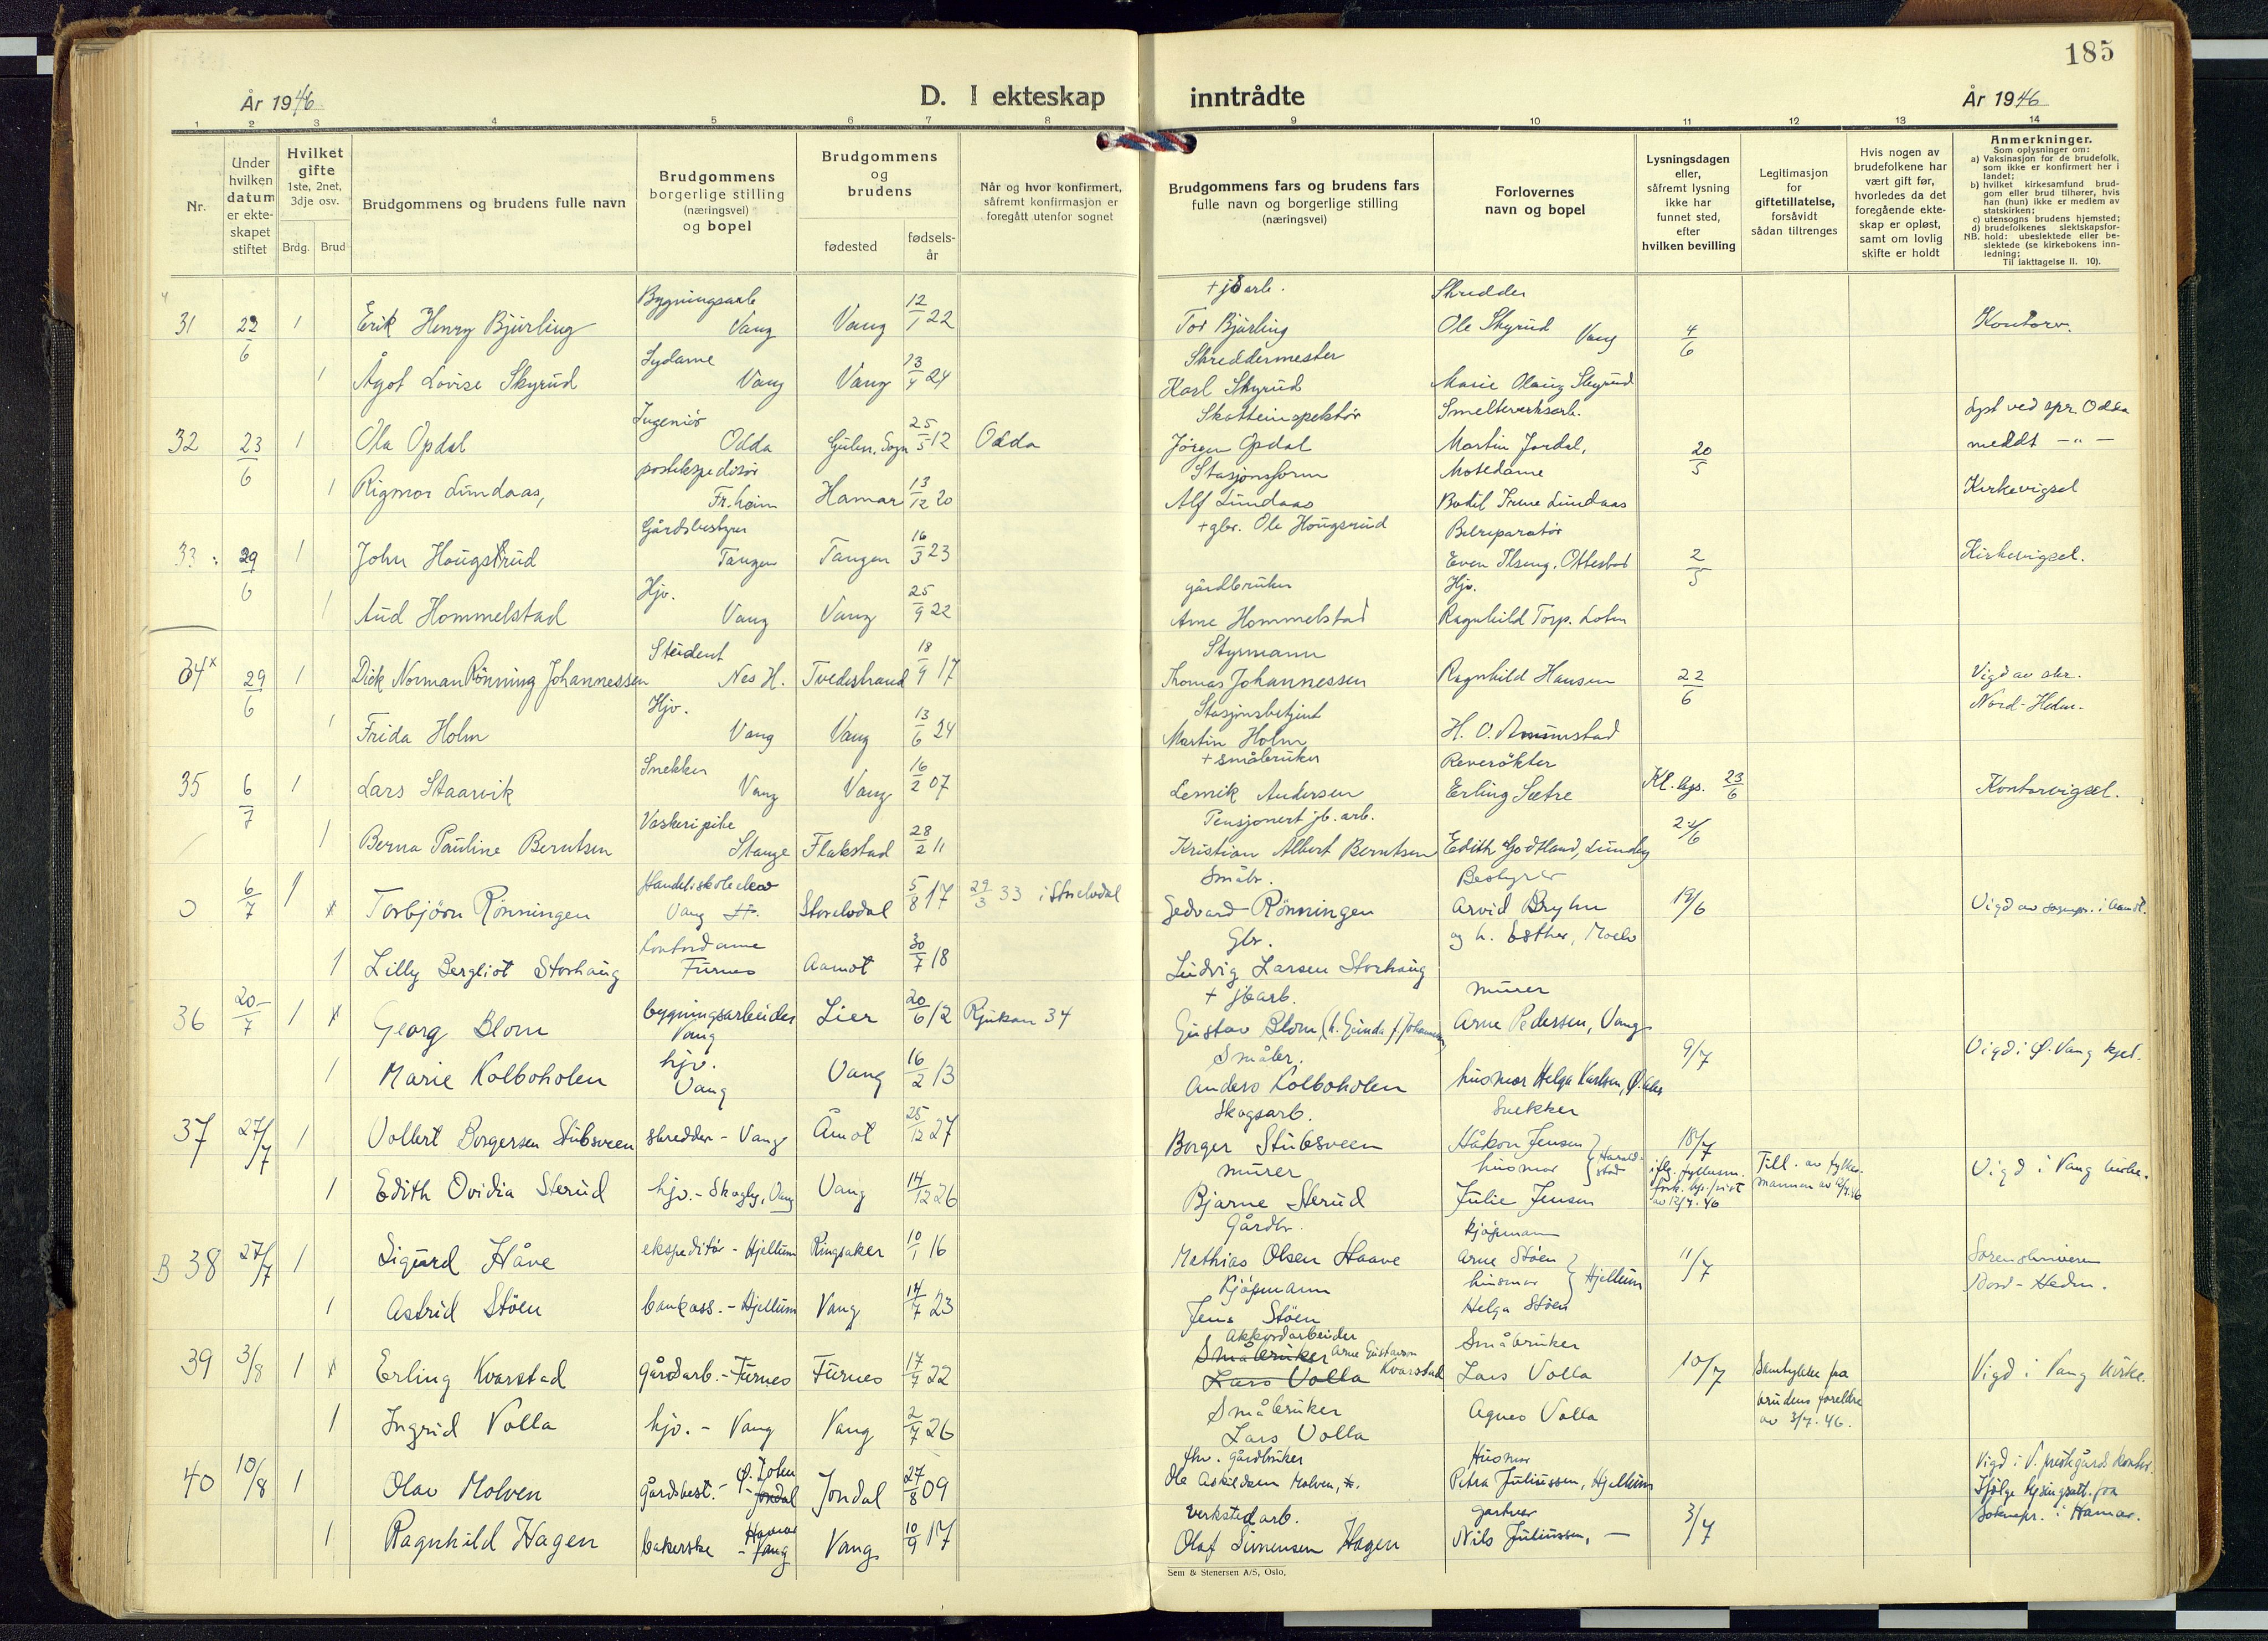 185
År 1946
D. I ekteskap
inntrådte
År 1946
1 2 3 4 5 6 7 8 9 10 11 12 13 14
Nr.
Under hvilken datum er ekteskapet stiftet
Hvilket gifte
1ste, 2net, 3dje osv.
Brdg. Brud
Brudgommens og brudens fulle navn
Brudgommens borgerlige stilling (næringsvei) og bopel
Brudgommens og brudens
fødested
fødselsår
Når og hvor konfirmert, såfremt konfirmasjon er foregått utenfor sognet
Brudgommens fars og brudens fars fulle navn og borgerlige stilling (næringsvei)
Forlovernes navn og bopel
Lysningsdagen eller, såfremt lysning ikke har funnet sted, efter hvilken bevilling
Legitimasjon for giftetillatelse, forsåvidt sådan tiltrenges
Hvis nogen av brudefolkene har vært gift før, hvorledes da det foregående ekteskap er opløst, samt om lovlig skifte er holdt
Anmerkninger.
Som oplysninger om:
a) Vaksinasjon for de brudefolk, som ikke er konfirmert her i landet;
b) hvilket kirkesamfund brudgom eller brud tilhører, hvis han (hun) ikke er medlem av statskirken;
c) utensogns brudens hjemsted;
d) brudefolkenes slektskapsforhold: ubeslektede eller beslektede (se kirkebokens innledning;
NB.
Til iakttagelse II. 10).
31 22/6 1 Erik Henry Bjürling Bygningsarb Vang Vang 12/1 22 + jb arb. Tor Bjürling Skredder Ole Skyrud Vang 4/6 Kontorv.
1 Ågot Lovise Skyrud Sydame Vang Vang 13/4 24 Skreddermester Karl Skyrud Marie Olaug Skyrud
32 23/6 1 Ola Opdal Ingeniør Odda Gulen, Sogn 25/5 12 Odda Skatteinspektør Jørgen Opdal Smelteverksarb. Martin Jordal, 20/5 Lyst ved spr. Odda meddt — " —
1 Rigmor Lundaas, postekspeditør Fr.heim Hamar 13/12 20 Stasjonsform Alf Lundaas Motedame Bodil Irene Lundaas Kirkevigsel
33 29/6 1 John Haugsrud Gårdsbestyrer Tangen Tangen 16/3 23 + gbr. Ole Hougsrud Bilreparatør Even Ilseng, Ottestad 2/5 Kirkevigsel.
1 Aud Hommelstad Hjv. Vang Vang 25/9 22 gårdbruker Arne Hommelstad Hjv. Ragnhild Torp. Loten
34 x 29/6 1 Dick Norman Rønning Johannessen Student Nes H. Tvedestrand 18/9 17 Styrmann Thomas Johannessen Ragnhild Hansen 22/6 Vigd av skr. Nord-Hedm.
1 Frida Holm Hjv. Vang Vang 13/6 24 Stasjonsbetjent Martin Holm H. O. Ammestad
35 6/7 1 Lars Staarvik Snekker Vang Vang 16/2 07 + småbruker Lenrik Andersen Reverøkter Erling Sætre Kl. lys. 23/6 Kontorvigsel.
1 Berna Pauline Berntsen Vaskeripike Stange Flakstad 28/2 11 Pensjonert jb. arb. Kristian Albert Berntsen Edith Godtland, Lundby
0 6/7 1 x Torbjörn Rönningen Handelsskoleelev Vang Storelvdal 5/8 17 29/3 33 i Storelvdal Småbr. Gedvard Rönningen Bestyrer Arvid Bryhn og h. Esther, Moelv 19/6 Vigd av sognepr. i Aamot.
1 Lilly Bergliot Storhaug Kontordame Furnes Aamot 30/7 18 Gbr. Ludvig Larsen Storhaug
36 20/7 1 x Georg Blom bygningsarbeider Vang Lier 20/6 12 Rjukan 34 + jbarb. Gustav Blom, (h. Gunda f. Johannesen) murer Arne Pedersen, Vang 9/7 Vigd i Ø. Vang kpl.
1 Marie Kolboholen hjv. Vang Vang 16/2 13 Småbr. Anders Kolboholen husmor Helga Karlsen,
37 27/7 1 Vollert Borgersen Stubsveen skredder - Vang Åmot 25/12 27 Skogsarb. Borger Stubsveen Snekker Håkon Jensen 18/7
1 Edith Ovidia Sterud hjv. - Skogly, Vang Vang 14/12 26 murer Bjarne Sterud husmor Julie Jensen Till. av fylkesmannen av 12/7.46 Vigd i Vang kirke.
B 38 27/7 1 Sigurd Håve ekspeditör - Hjellum Ringsaker 10/1 16 Gårdbr. Mathias Olsen Haave kjøpmann Arne Stöen 11/7 Sorenskriveren Nord-Hedm.
1 Astrid Stöen bankass. - Hjellum Vang 14/7 23 Kjøpmann Jens Stöen husmor Helga Stöen Hjellum
39 3/8 1 x Erling Kvarstad gårdsarb. - Furnes Furnes 17/7 22 Akkordarbeider Småbruker Arne Gustavson Lars Volla Kvarstad Småbruker Lars Volla 10/7 Samtykke fra brudens foreldre av 3/7.46. Vigd i Vang kirke.
1 Ingrid Volla hjv. - Vang Vang 2/7 26 Småbruker Lars Volla Agnes Volla
40 10/8 1 Olav Molven gårdsbest. - Ø. Toten - Jondal Jondal 27/8 09 fhv. gårdbruker Ole Askildsen Molven, Husmor Petra Juliussen, Hjellum Vigd i V. prestegårds kontor.
1 Ragnhild Hagen bakerske - Hamar Vang Vang 10/9 17 verkstedarb. Olaf Simensen Hagen gartner Nils Juliussen, — 3/7 Ifølge lysingsatt. fra Soknepr. i Hamar.
Sem & Stenersen A/S, Oslo.